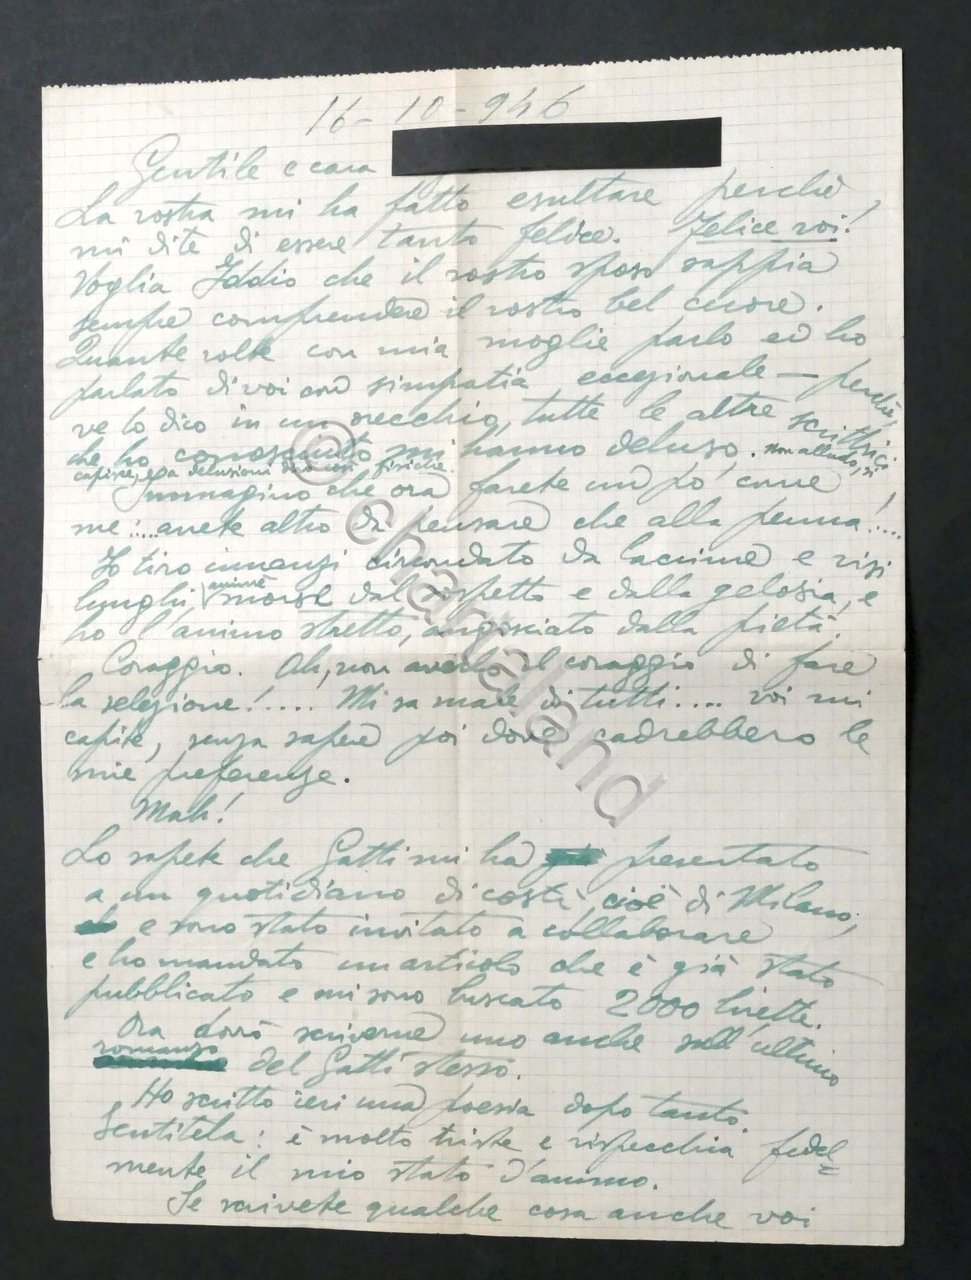 16-10-946
Gentile e cara
La vostra mi ha fatto esultare perchè
mi dite di essere tanto felice. Felice voi!
Voglia Iddio che il vostro sposo sappia
sempre comprendere il vostro bel cuore.
Quante volte con mia moglie parlo ed ho
parlato di voi con simpatia eccezionale — perchè,
ve lo dico in un orecchio, tutte le altre scrittrici
che ho conosciuto mi hanno deluso. non alludo, si
capisce, a delusioni fisiche.
Immagino che ora farete un po' come
me:.... avete altro da pensare che alla penna!....
Io tiro innanzi circondato da lacrime e visi
lunghi, anime morse dal sospetto e dalla gelosia, e
ho l'animo stretto, angosciato dalla pietà.
Coraggio. Ah, non averlo il coraggio di fare
la selezione!..... Mi sa male di tutti.... voi mi
capite, senza sapere poi dove cadrebbero le
mie preferenze.
Mah!
Lo sapete che Gatti mi ha presentato
a un quotidiano di costà cioè di Milano,
e sono stato invitato a collaborare
e ho mandato un articolo che è già stato
pubblicato e mi sono buscato 2000 lirette.
Ora dovrò scriverne uno anche sull'ultimo
romanzo del Gatti stesso.
Ho scritto ieri una poesia dopo tanto.
Sentitela: è molto triste e rispecchia fedel=
mente il mio stato d'animo.
Se scrivete qualche cosa anche voi
© chartaland